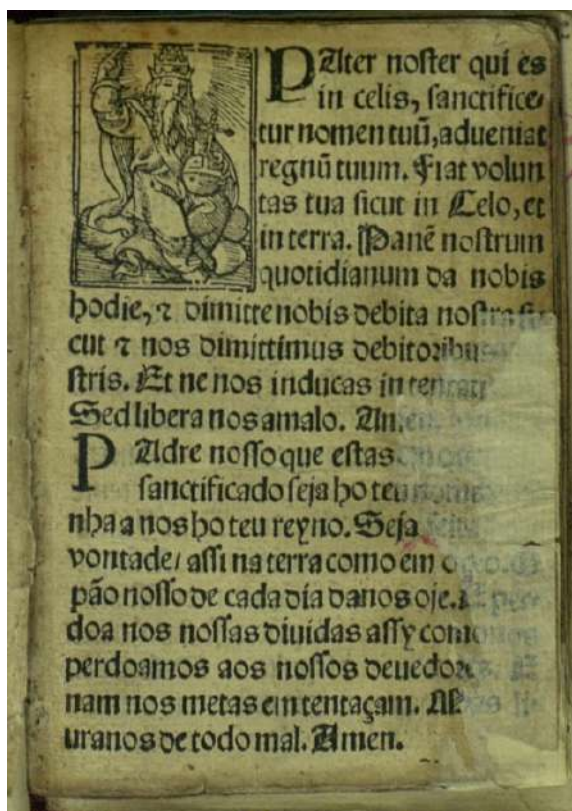 PAter noster qui es
in celis, sanctifice⸗
tur nomen tuũ, adueniat
regnũ tuum. Fiat volun
tas tua sicut in Celo, et
in terra. Panẽ nostrum
quotidianum da nobis
hodie, ⁊ dimitte nobis debita nostra si
cut ⁊ nos dimittimus debitoribus
stris. Et ne nos inducas in tentati
Sed libera nos amalo. Amen.
PAdre nosso que estas
sanctificado seja ho teu
nha a nos ho teu reyno. Seja
vontade/ assi na terra como em o
pão nosso de cada dia danos oje.
doa nos nossas diuidas assy como
perdoamos aos nossos deuedores
nam nos metas em tentaçam.
uranos de todo mal. Amen.